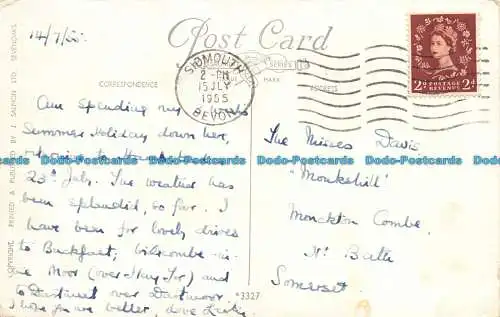 14/7/55.
Post Card
CORRESPONDENCE
ADDRESS
SIDMOUTH
2 - PM
15 JLY
1955
DEVON
2d POSTAGE REVENUE 2d
COPYRIGHT, PRINTED & PUBLISHED BY J. SALMON LTD. SEVENOAKS
Am spending my
Summer Holiday down here,
returning to
23rd July. The weather has
been splendid, so far. I
have been for lovely drives
to Buckfast, Widecombe-in-
the Moor (over Hay Tor) and
to Dartmeet over Dartmoor.
I hope you are better, love
The Misses Davis
"Monkshill"
Monckton Combe.
Nr. Bath
Somerset.
3327
Dodo-Postcards Dodo-Postcards Dodo-Postcards Dodo-Postcards
Dodo-Postcards Dodo-Postcards Dodo-Postcards Dodo-Postcards